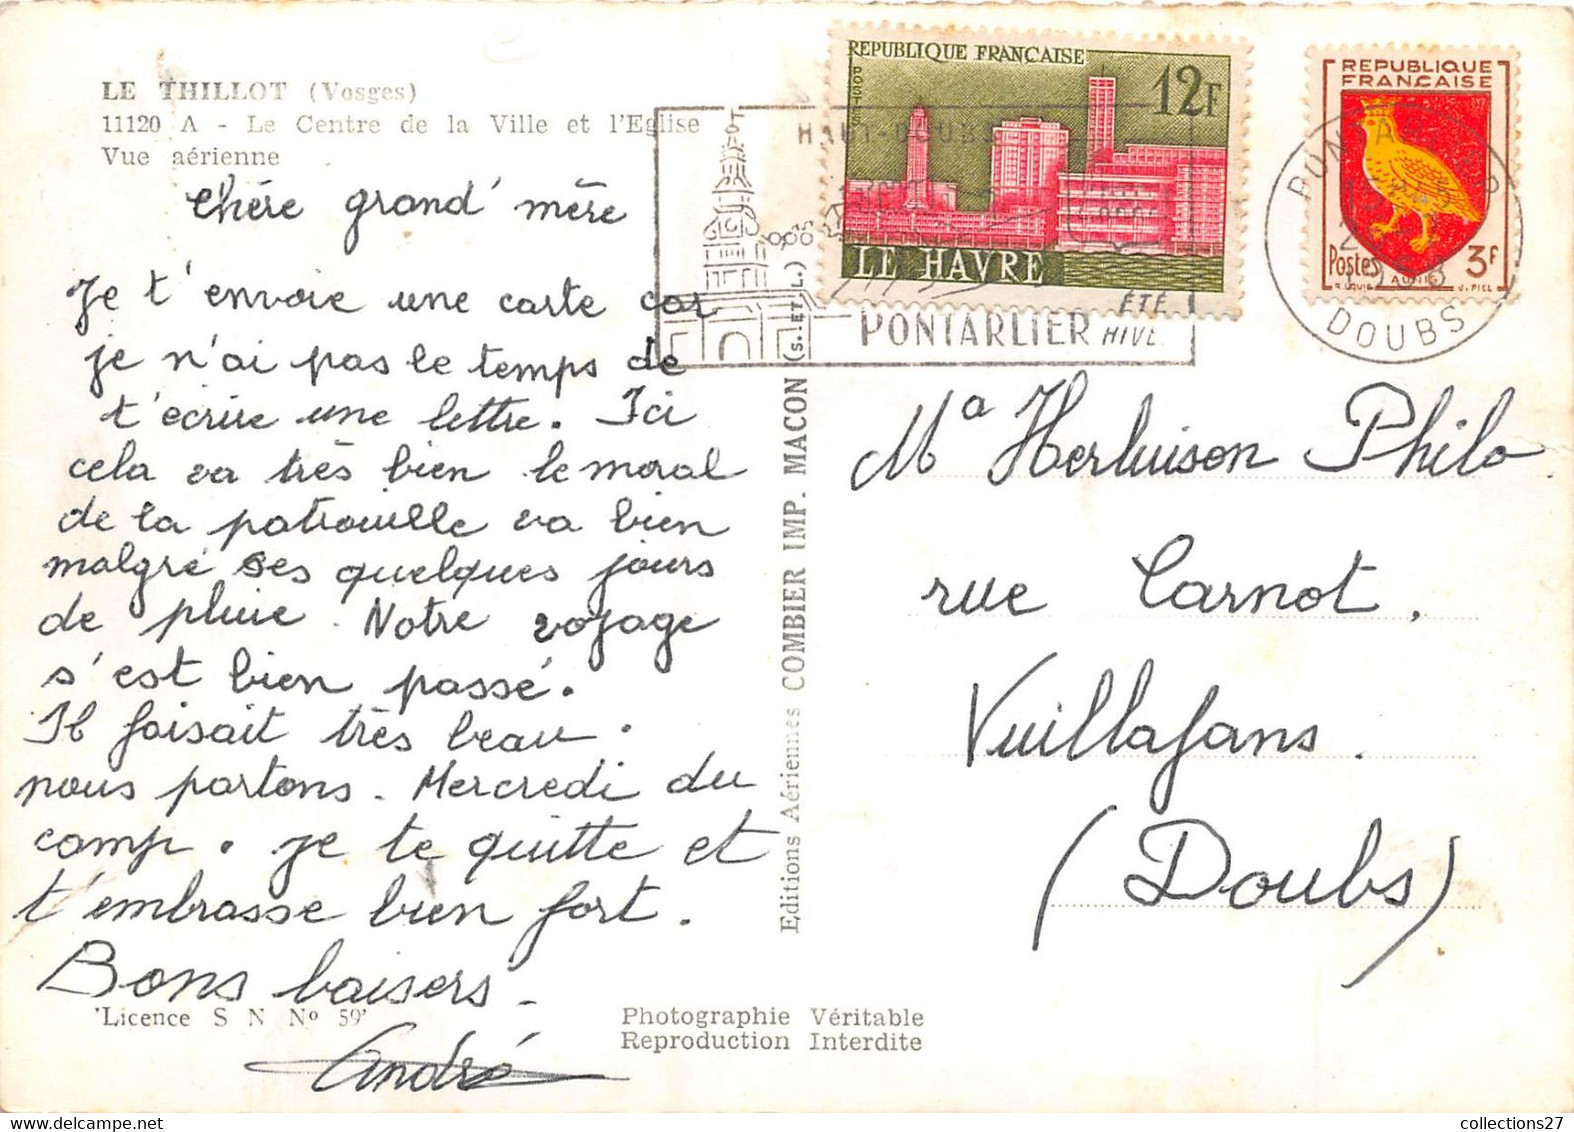 LE THILLOT (Vosges)
11120 A - Le Centre de la Ville et l'Eglise
Vue aérienne
Chére grand'mère
Je t'envoie une carte car
je n'ai pas le temps de
t'ecrire une lettre. Ici
cela va très bien le moral
de la patrouille va bien
malgré ses quelques jours
de pluie. Notre voyage
s'est bien passé.
Il faisait très beau.
nous partons. Mercredi du
camp. je te quitte et
t'embrasse bien fort.
Bons baisers.
André
'Licence S N Nº 59'
Photographie Véritable
Reproduction Interdite
Editions Aériennes COMBIER IMP. MACON (S. ET L.)
REPUBLIQUE FRANÇAISE
POSTES
12F
LE HAVRE
HAUT-DOUBS
PONTARLIER
ÉTÉ
HIVE
REPUBLIQUE
FRANÇAISE
Postes
3F
AUNIS
R. LOUIS
J. PIEL
DOUBS
Mª Herluison Philo
rue Carnot.
Vuillafans.
(Doubs)
collections27